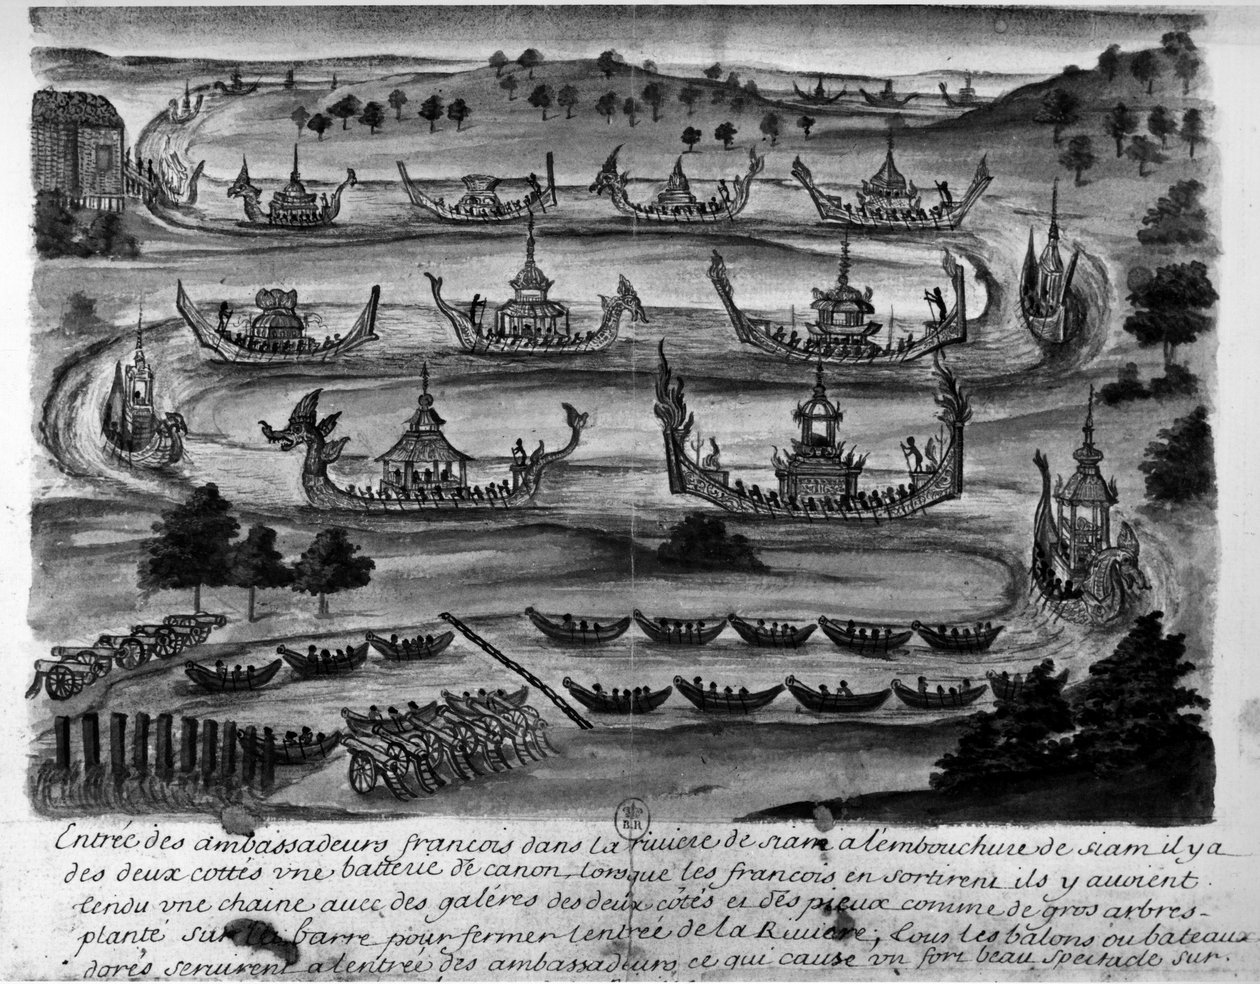 B.R
Entrée des ambassadeurs francois dans la riviere de siam a lembouchure de siam il y a
des deux cottés vne batterie de canon, lorsque les francois en sortirent ils y auoient
tendu vne chaine auec des galéres des deux côtés et des pieux comme de gros arbres
planté sur la barre pour fermer lentrée de la Riviere, tous les balons ou bateaux
dorés seruirent a lentrée des ambassadeurs ce qui cause vn fort beau spectacle sur.